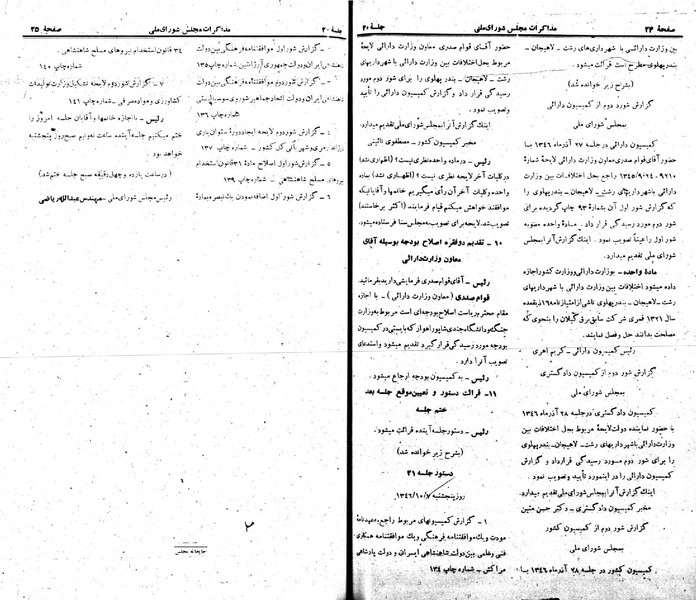 صفحهٔ ۲۴ مذاکرات مجلس شورای ملی جلسهٔ ۲۰
بین وزارت دارائی با شهرداریهای رشت - لاهیجان -
بندرپهلوی مطرح است قرائت میشود.
(بشرح زیر خوانده شد)
گزارش شور دوم از کمیسیون دارائی
بمجلس شورای ملی
کمیسیون دارائی در جلسه ۲۷ آذرماه ۱۳۴۶ با
حضور آقای قوام صدری معاون وزارت دارائی لایحهٔ شمارهٔ
۹۲۱۰ - راجع بحل اختلافات بین وزارت
دارائی با شهرداریهای رشت - لاهیجان - بندرپهلوی را
که گزارش شور اول آن بشمارهٔ ۹۳ چاپ گردیده برای
شور دوم مورد رسیدگی قرار داد. مادهٔ واحده مصوبه
شور اول را عیناً تصویب نمود. اینک گزارش آنرا بمجلس
شورای ملی تقدیم میدارد.
مادهٔ واحده - بوزارت دارائی و وزارت کشور اجازه
داده میشود اختلافات بین وزارت دارائی با شهرداریهای
رشت - لاهیجان - بندرپهلوی ناشی از امتیازنامه
سال ۱۳۲۱ قمری شرکت سابق برق گیلان را بنحوی که
مصلحت بدانند حل و فصل نمایند.
رئیس کمیسیون دارائی - کریم اهری
گزارش شور دوم از کمیسیون دادگستری
بمجلس شورای ملی
کمیسیون دادگستری در جلسه ۲۸ آذرماه ۱۳۴۶
با حضور نماینده دولت لایحهٔ مربوط بحل اختلافات بین
وزارت دارائی با شهرداریهای رشت - لاهیجان - بندرپهلوی
را برای شور دوم مورد رسیدگی قرار داد و گزارش
کمیسیون دارائی را در اینمورد تأیید و تصویب نمود.
اینک گزارش آنرا بمجلس شورای ملی تقدیم میدارد.
مخبر کمیسیون دادگستری - دکتر حسن متین
گزارش شور دوم از کمیسیون کشور
بمجلس شورای ملی
کمیسیون کشور در جلسه ۲۸ آذرماه ۱۳۴۶ با
حضور آقای قوام صدری معاون وزارت دارائی لایحهٔ
مربوط بحل اختلافات بین وزارت دارائی با شهرداریهای
رشت - لاهیجان - بندرپهلوی را برای شور دوم مورد
رسیدگی قرار داد و گزارش کمیسیون دارائی را تأیید و
تصویب نمود.
اینک گزارش آنرا بمجلس شورای ملی تقدیم میدارد.
مخبر کمیسیون کشور - مصطفوی نائینی
رئیس - در ماده واحده نظری نیست؟ (اظهاری نشد)
در کلیات آخر لایحه نظری نیست؟ (اظهاری نشد) بماده
واحده و کلیات آخر آن رأی میگیریم خانمها و آقایانیکه
موافقند خواهش میکنم قیام فرمایند (اکثر برخاستند)
تصویب شد. لایحه برای تصویب بمجلس سنا فرستاده میشود.
۱۰ - تقدیم دو فقره اصلاح بودجه بوسیله آقای
معاون وزارت دارائی
رئیس - آقای قوام صدری فرمایشی دارید بفرمائید.
قوام صدری (معاون وزارت دارائی) - با اجازه
مقام محترم ریاست اصلاح بودجه‌ای است مربوط بوزارت
جنگ و دانشگاه جندی شاپور اهواز که بایستی در کمیسیون
بودجه مورد رسیدگی قرار گیرد تقدیم میشود و استدعای
تصویب آنرا دارد.
رئیس - به کمیسیون بودجه ارجاع میشود.
۱۱ - قرائت دستور و تعیین موقع جلسه بعد
ختم جلسه
رئیس - دستور جلسه آینده قرائت میشود.
(بشرح زیر خوانده شد)
دستور جلسه ۲۱
روز پنجشنبه ۱۳۴۶/۱۰/۷
۱ - گزارش کمیسیونهای مربوط راجع بعهدنامهٔ
مودت و یک موافقتنامه فرهنگی و یک موافقتنامه همکاری
فنی و علمی بین دولت شاهنشاهی ایران و دولت پادشاهی
مراکش - شماره چاپ ۱۳۴
جلسهٔ ۲۰ مذاکرات مجلس شورای ملی صفحهٔ ۲۵
- گزارش شور اول موافقتنامه فرهنگی بین دولت
شاهنشاهی ایران و دولت جمهوری آرژانتین - شماره چاپ ۱۳۵
- گزارش شور دوم موافقتنامه فرهنگی بین دولت
شاهنشاهی ایران و دولت اتحاد جماهیر شوروی سوسیالیستی
شماره چاپ ۱۳۶
۴ - گزارش شور دوم لایحه ایجاد دورهٔ
کشور - شماره چاپ ۱۳۷
۵ - گزارش شور اول اصلاح مادهٔ ۳۱ قانون استخدام
نیروهای مسلح شاهنشاهی - شماره چاپ ۱۳۹
۶ - گزارش شور اول اضافه نمودن یک تبصره بمادهٔ
۳۴ قانون استخدام نیروهای مسلح شاهنشاهی
شماره چاپ ۱۴۰
۷ - گزارش شور دوم لایحه تشکیل وزارت تولیدات
کشاورزی و مواد مصرفی - شماره چاپ ۱۴۱
رئیس - با اجازه خانمها و آقایان جلسه امروز را
ختم میکنیم جلسه آینده ساعت نه و نیم صبح روز پنجشنبه
خواهد بود.
(در ساعت یازده و چهل دقیقه صبح جلسه ختم شد)
رئیس مجلس شورای ملی - مهندس عبدالله ریاضی
۲
چاپخانه مجلس